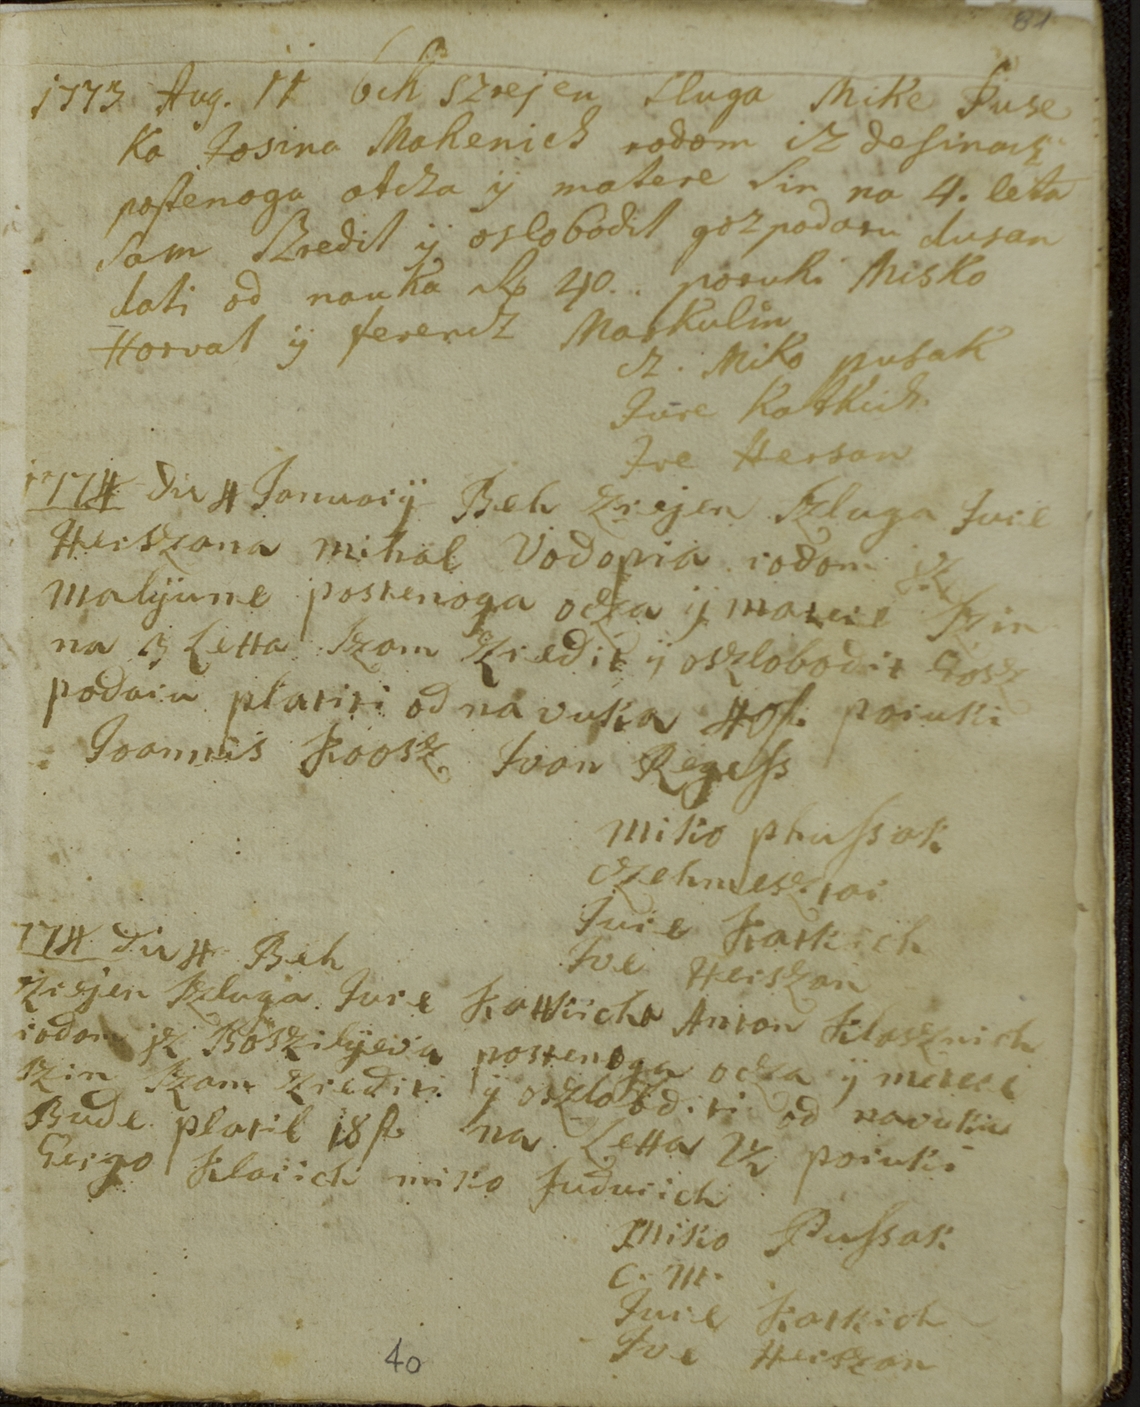 81
1773 Aug. 11 beh szrejen sluga Mike Puse
Ka Josina Mohenich rodom iz
postenoga otcza ÿ matere sin na 4. leta
sam Szredil ÿ oslobodil gozpodaru dusan
dati od nauka 40.. poruki Misko
Horvat ÿ ferencz Markulin
cz. Miko pusak
Jure Katkich
Ive Hersan
1774 Die 4 Januarÿ Beh Zrejen Szluga Jure
Herszana mihal Vodopia rodom jz
Malÿune postenoga ocza ÿ matere Szin
na 3 Letta Szam Zredit ÿ oszlobodit Gosz
podaru platiti od navuka 40f. poruki
Joannes Koosz Ivan Regess
Miko phussak
Czehmesztar
Jure Katkich
Ive Herszan
774 Die 4 Beh
Zrejen Szluga Jure Kattkicha Anton Klosznich
rodom jz Boszilÿeva postenoga ocza ÿ matere
Szin Szam Zrediti ÿ oszlobditi od navuka
Bude platil 18f. na Letta 2½ poruki
Gergo Klarich miko Judurich
Miko Pussak
C. M.
Jure Katkich
Ive Herszan
40